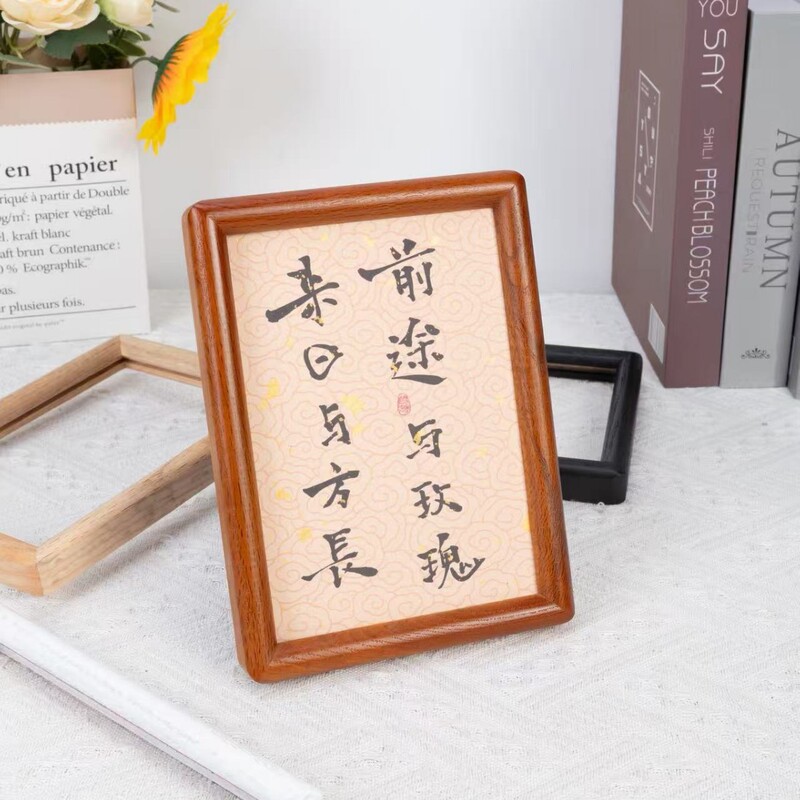 前途与玫瑰
来日与方長
en papier
riqué à partir de Double
g/m²: papier végétal.
el. kraft blanc
aft brun Contenance:
0 % Ecographik..
pas.
r plusieurs fois.
YOU
SAY
SHILI PEACHBLOSSOM
AUTUMN
REQUEST RAIN